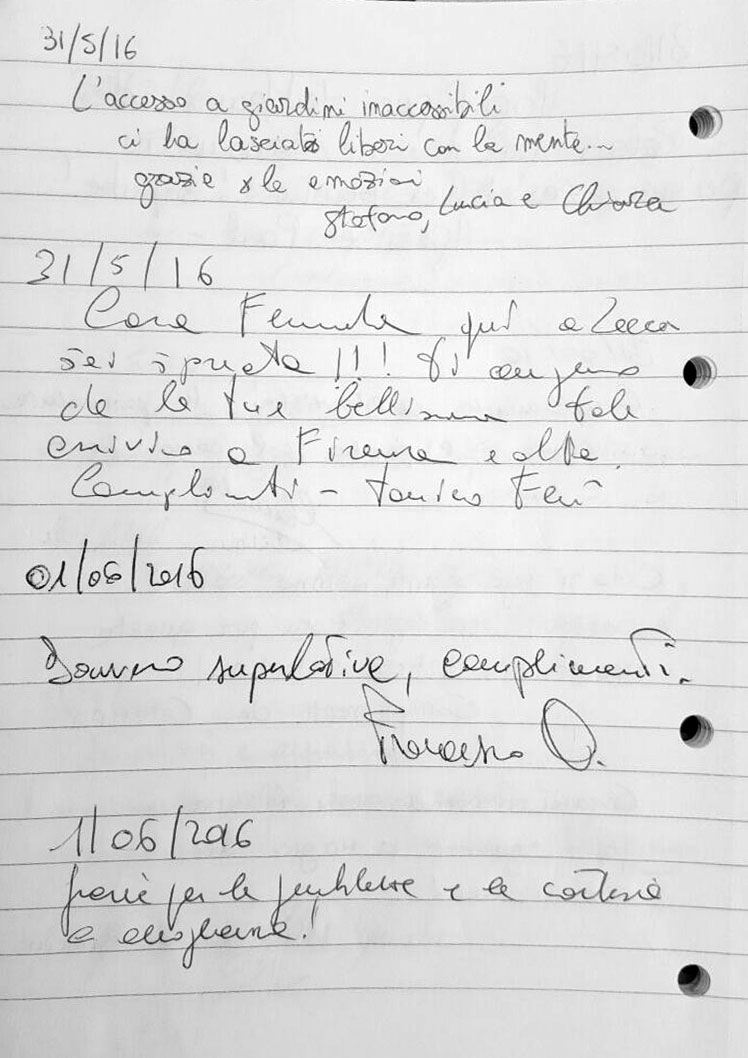 31/5/16
L'accesso a giardini inaccessibili
ci ha lasciato liberi con la mente...
grazie x le emozioni
Stefano, Lucia e Chiara
31/5/16
Cara qui a Lecce
sei sprecata !!! Ti auguro
che le tue bellissime tele
arrivino a Firenze e oltre.
Complimenti -
01/06/2016
Davvero superlative, complimenti.
Francesco O.
1/06/2016
grazie per la gentilezza e la cortesia
e accoglienza!